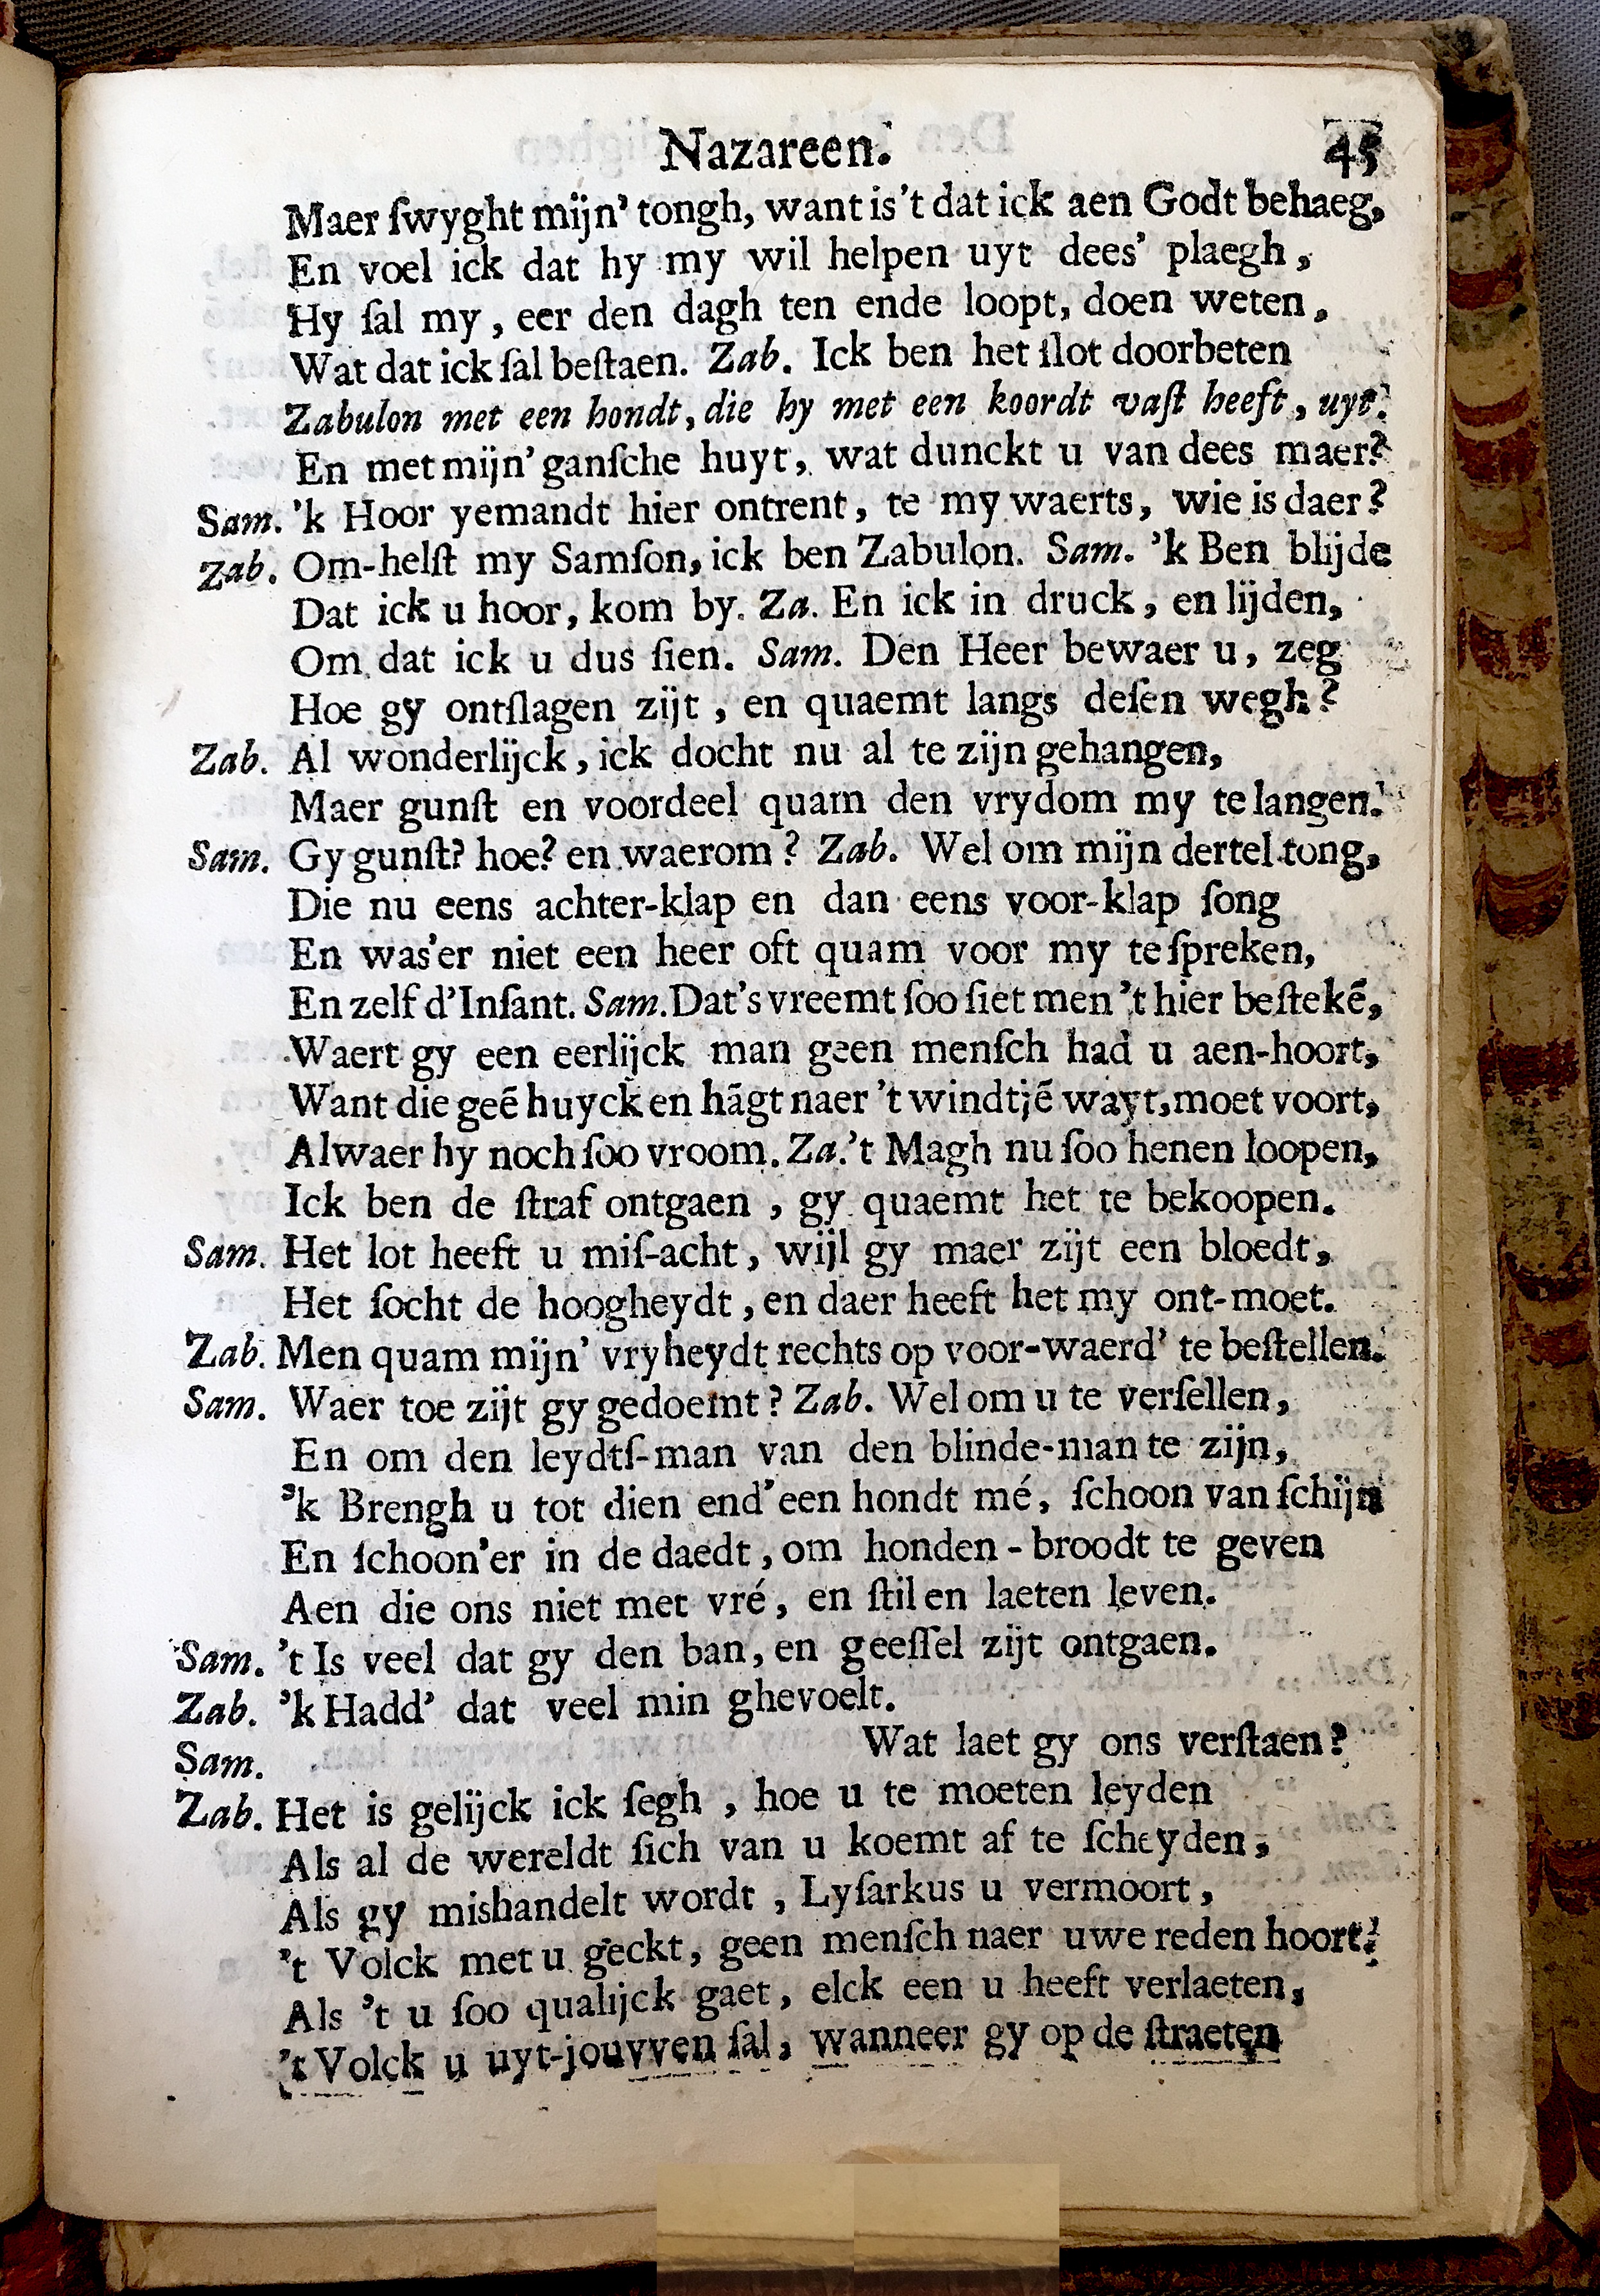 Nazareen. 45
Maer ſwyght mijn' tongh, want is't dat ick aen Godt behaeg,
En voel ick dat hy my wil helpen uyt dees' plaegh,
Hy ſal my, eer den dagh ten ende loopt, doen weten,
Wat dat ick ſal beſtaen. Zab. Ick ben het ſlot doorbeten
Zabulon met een hondt, die hy met een koordt vaſt heeft, uyt.
En met mijn' ganſche huyt, wat dunckt u van dees maer?
Sam. 'k Hoor yemandt hier ontrent, te my waerts, wie is daer?
Zab. Om-helſt my Samſon, ick ben Zabulon. Sam. 'k Ben blijde
Dat ick u hoor, kom by. Za. En ick in druck, en lijden,
Om dat ick u dus ſien. Sam. Den Heer bewaer u, zeg
Hoe gy ontſlagen zijt, en quaemt langs deſen wegh?
Zab. Al wonderlijck, ick docht nu al te zijn gehangen,
Maer gunſt en voordeel quam den vrydom my te langen.
Sam. Gy gunſt? hoe? en waerom? Zab. Wel om mijn dertel tong,
Die nu eens achter-klap en dan eens voor-klap ſong
En was'er niet een heer oft quam voor my te ſpreken,
En zelf d'Inſant. Sam. Dat's vreemt ſoo ſiet men 't hier beſtekē,
Waert gy een eerlijck man geen menſch had u aen-hoort,
Want die geē huyck en hāgt naer 't windtjē wayt, moet voort,
Alwaer hy noch ſoo vroom. Za. 't Magh nu ſoo henen loopen,
Ick ben de ſtraf ontgaen, gy quaemt het te bekoopen.
Sam. Het lot heeft u miſ-acht, wijl gy maer zijt een bloedt,
Het ſocht de hoogheydt, en daer heeft het my ont-moet.
Zab. Men quam mijn' vryheydt rechts op voor-waerd' te beſtellen.
Sam. Waer toe zijt gy gedoemt? Zab. Wel om u te verſellen,
En om den leydtſ-man van den blinde-man te zijn,
'k Brengh u tot dien end' een hondt mé, ſchoon van ſchijn
En ſchoon'er in de daedt, om honden-broodt te geven
Aen die ons niet met vré, en ſtil en laeten leven.
Sam. 't Is veel dat gy den ban, en geeſſel zijt ontgaen.
Zab. 'k Hadd' dat veel min ghevoelt.
Sam. Wat laet gy ons verſtaen?
Zab. Het is gelijck ick ſegh, hoe u te moeten leyden
Als al de wereldt ſich van u koemt af te ſcheyden,
Als gy mishandelt wordt, Lyſarkus u vermoort,
't Volck met u geckt, geen menſch naer uwe reden hoort.
Als 't u ſoo qualijck gaet, elck een u heeft verlaeten,
't Volck u uyt-jouvven ſal, wanneer gy op de ſtraeten